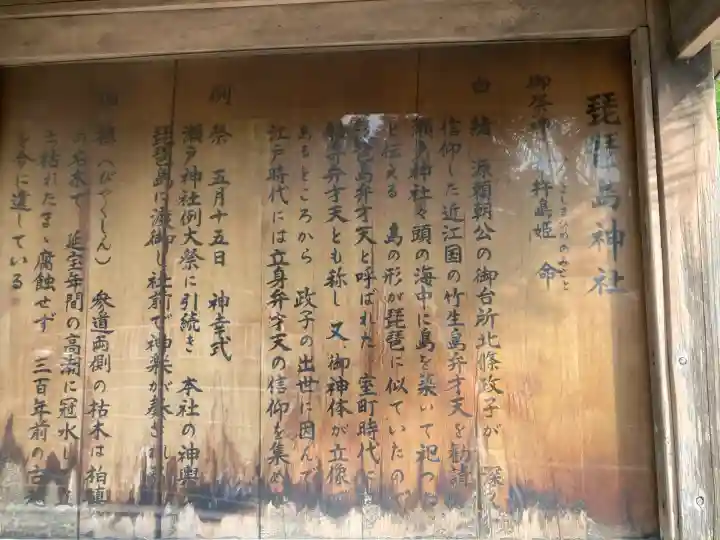 琵琶島神社
御祭神 市杵島姫 命
いちきしまひめのみこと
由緒 源頼朝公の御台所北條政子が 深く
信仰した近江国の竹生島弁才天を勧請
瀬戸神社々頭の海中に島を築いて祀つた
と伝える 島の形が琵琶に似ていたので
琵琶島弁才天と呼ばれた 室町時代
弁才天とも称し 又、御神体が立像
あるところから 政子の出世に因んで
江戸時代には立身弁才天の信仰を集め
例祭 五月十五日 神幸式
瀬戸神社例大祭に引続き 本社の神輿
琵琶島に渡御し社前で神楽が奏され
槙(へびやくしん) 参道両側の枯木は柏槙
の名木で 延宝年間の高潮に冠水し
枯れたまゝ腐蝕せず 三百年前の古
を今に遺している